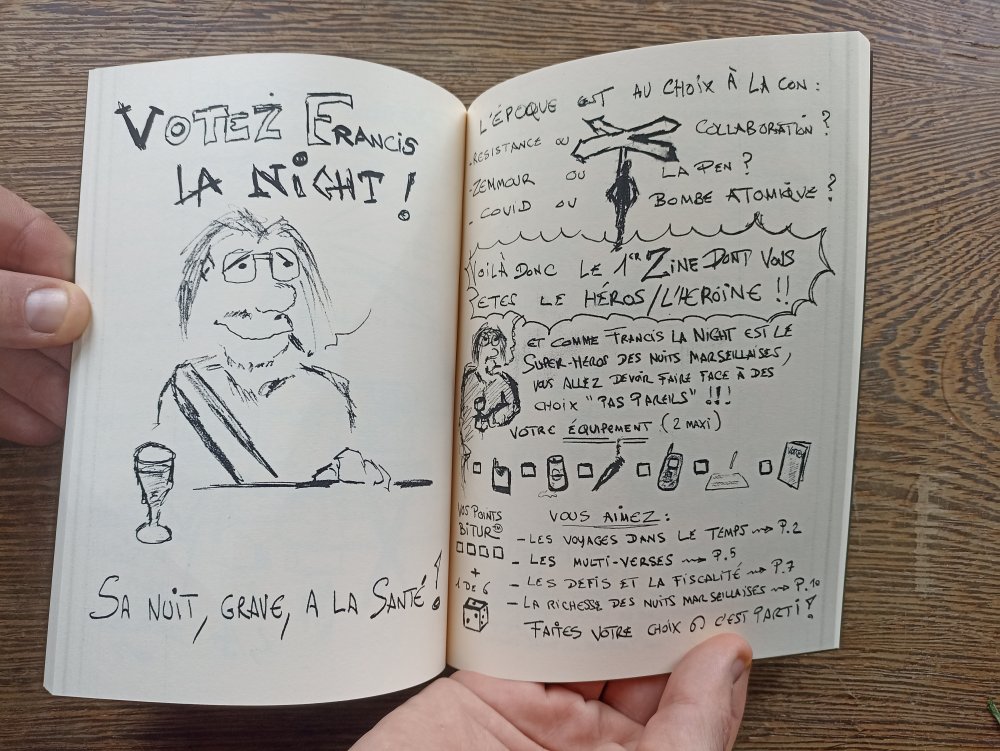 VOTEZ FRANCIS
LA NIGHT !
SA NUIT, GRAVE, A LA SANTÉ !
L'ÉPOQUE EST AU CHOIX À LA CON :
- RESISTANCE OU COLLABORATION ?
- ZEMMOUR OU LA PEN ?
- COVID OU BOMBE ATOMIQUE ?
VOILÀ DONC LE 1ER ZINE DONT VOUS
ETES LE HÉROS/L'HEROÏNE !!
ET COMME FRANCIS LA NIGHT EST LE
SUPER-HEROS DES NUITS MARSEILLAISES,
VOUS ALLEZ DEVOIR FAIRE FACE À DES
CHOIX "PAS PAREILS" !!!
VOTRE ÉQUIPEMENT (2 MAXI)
VOS POINTS
BITUR
+
1 DE 6
VOUS AIMEZ :
- LES VOYAGES DANS LE TEMPS → P.2
- LES MULTI-VERSES → P.5
- LES DEFIS ET LA FISCALITÉ → P.7
- LA RICHESSE DES NUITS MARSEILLAISES → P.10
FAITES VOTRE CHOIX C'EST PARTI !